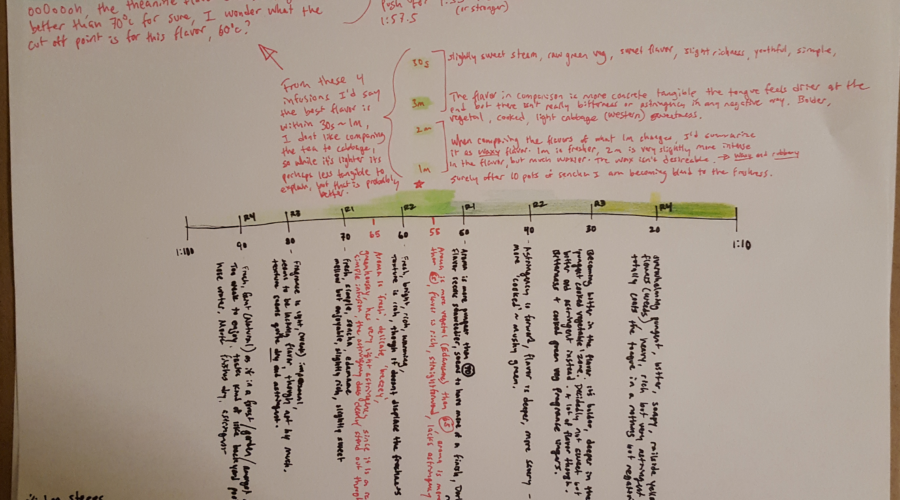 better than 70°c for sure, I wonder what the
cut off point is for this flavor, 60°c?
1:57.5
(or stronger)
From these 4
infusions I'd say
the best flavor is
within 30s ~ 1m,
I dont like comparing
the tea to cabbage,
so while it's lighter its
perhaps less tangible to
explain, but that is probably
better.
30s
slightly sweet steam, raw green veg, sweet flavor, slight richness, youthful, simple,
3m
The flavor in comparison is more concrete tangible the tongue feels drier at the
end but there isn't really bitterness or astringency in any negative way. Bolder,
vegetal, cooked, light cabbage (western) sweetness.
2m
When comparing the flavors of what 1m changed, I'd summarize
it as waxy flavor. 1m is fresher, 2m is very slightly more intense
in the flavor, but much waxier. The wax isn't desireable → waxy and rubbery
1m
Surely after 10 pots of sencha I am becoming blind to the freshness.
R4 R3 R1 R2 R1 R2 R3 R4
1:100 90 80 70 65 60 55 50 40 30 20 1:10
Fresh, faint (natural) as if in a forest/garden/amongst
Too weak to enjoy. tastes kind of like backyard
hose water. Mouth finishes dry, astringent
Fragrance is light, (weak) impersonal,
seems to be lacking flavor, though not by much.
texture seems quite dry and astringent.
Fresh, simple, sencha, edamame
mellow but enjoyable, slightly rich, slightly sweet
Aroma is fresh, delicate, breezy,
greenhousey, has very light astringency, since it is a
simple infusion, the astringency does clearly stand out though
Fresh, bright, rich, warming,
Texture is rich, though it doesnt displace the freshness
Aroma is more vegetal (edamame) than 65, aroma is more
than 65, flavor is rich, straightforward, lacks astringency
Aroma is more pungent than
flavor seems
- Astringency is forward, flavor is deeper, more savory -
more "cooked" ~ mushy green.
Becoming bitter in the flavor. its bolder, deeper in the
'pungent cooked vegetable' zone. Decidedly not sweet but
bitter and astringent instead. A lot of flavor though.
Bitterness + cooked green veg fragrance lingers.
overwhelming pungent, bitter, soapy,
flowers (weeds), heavy, rich but very astringent
totally coats the tongue in a nothing but negative